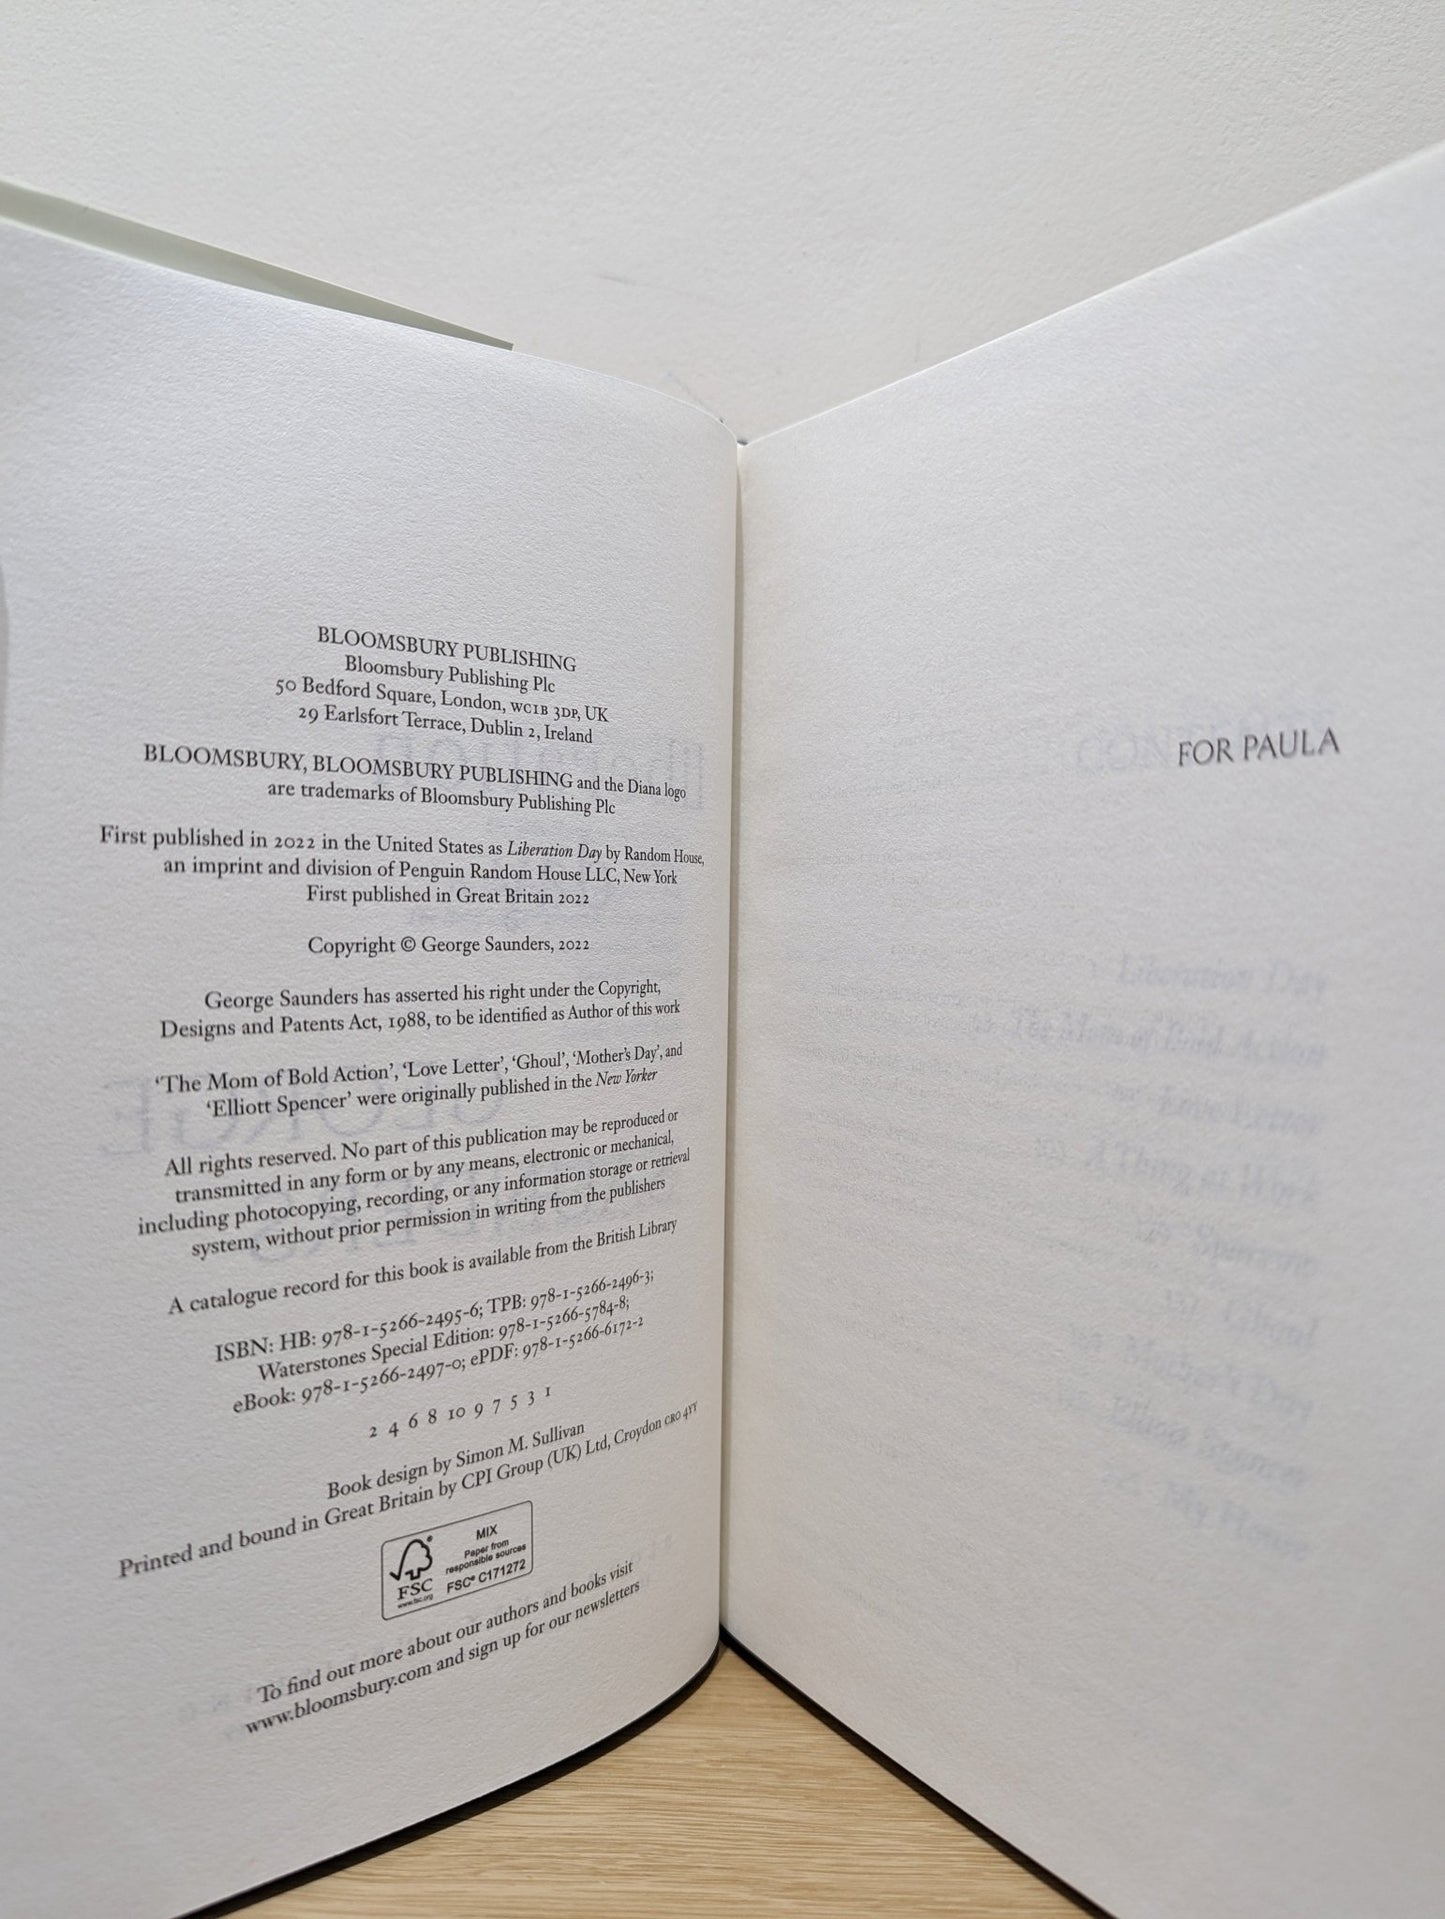 BLOOMSBURY PUBLISHING
Bloomsbury Publishing Plc
50 Bedford Square, London, WC1B 3DP, UK
29 Earlsfort Terrace, Dublin 2, Ireland
BLOOMSBURY, BLOOMSBURY PUBLISHING and the Diana logo
are trademarks of Bloomsbury Publishing Plc
First published in 2022 in the United States as Liberation Day by Random House,
an imprint and division of Penguin Random House LLC, New York
First published in Great Britain 2022
Copyright © George Saunders, 2022
George Saunders has asserted his right under the Copyright,
Designs and Patents Act, 1988, to be identified as Author of this work
‘The Mom of Bold Action’, ‘Love Letter’, ‘Ghoul’, ‘Mother’s Day’, and
‘Elliott Spencer’ were originally published in the New Yorker
All rights reserved. No part of this publication may be reproduced or
transmitted in any form or by any means, electronic or mechanical,
including photocopying, recording, or any information storage or retrieval
system, without prior permission in writing from the publishers
A catalogue record for this book is available from the British Library
ISBN: HB: 978-1-5266-2495-6; TPB: 978-1-5266-2496-3;
Waterstones Special Edition: 978-1-5266-5784-8;
eBook: 978-1-5266-2497-0; ePDF: 978-1-5266-6172-2
2 4 6 8 10 9 7 5 3 1
Book design by Simon M. Sullivan
Printed and bound in Great Britain by CPI Group (UK) Ltd, Croydon CR0 4YY
FSC
www.fsc.org
MIX
Paper from
responsible sources
FSC® C171272
To find out more about our authors and books visit
www.bloomsbury.com and sign up for our newsletters
FOR PAULA